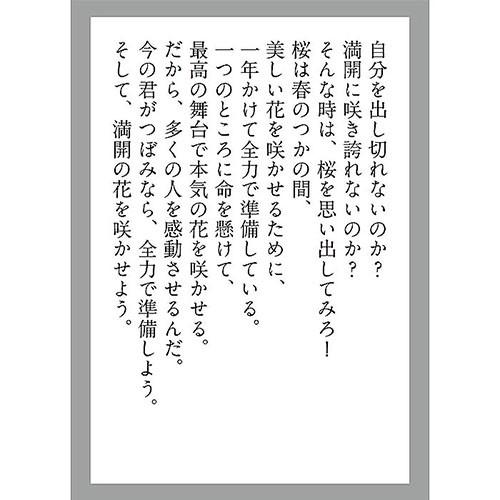 自分を出し切れないのか？
満開に咲き誇れないのか？
そんな時は、桜を思い出してみろ！
桜は春のつかの間、
美しい花を咲かせるために、
一年かけて全力で準備している。
一つのところに命を懸けて、
最高の舞台で本気の花を咲かせる。
だから、多くの人を感動させるんだ。
今の君がつぼみなら、全力で準備しよう。
そして、満開の花を咲かせよう。